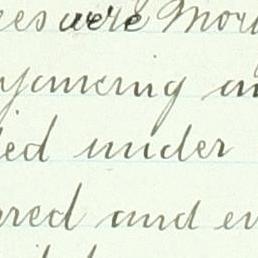 ees were Mor
yancing an
ied under
rred and en